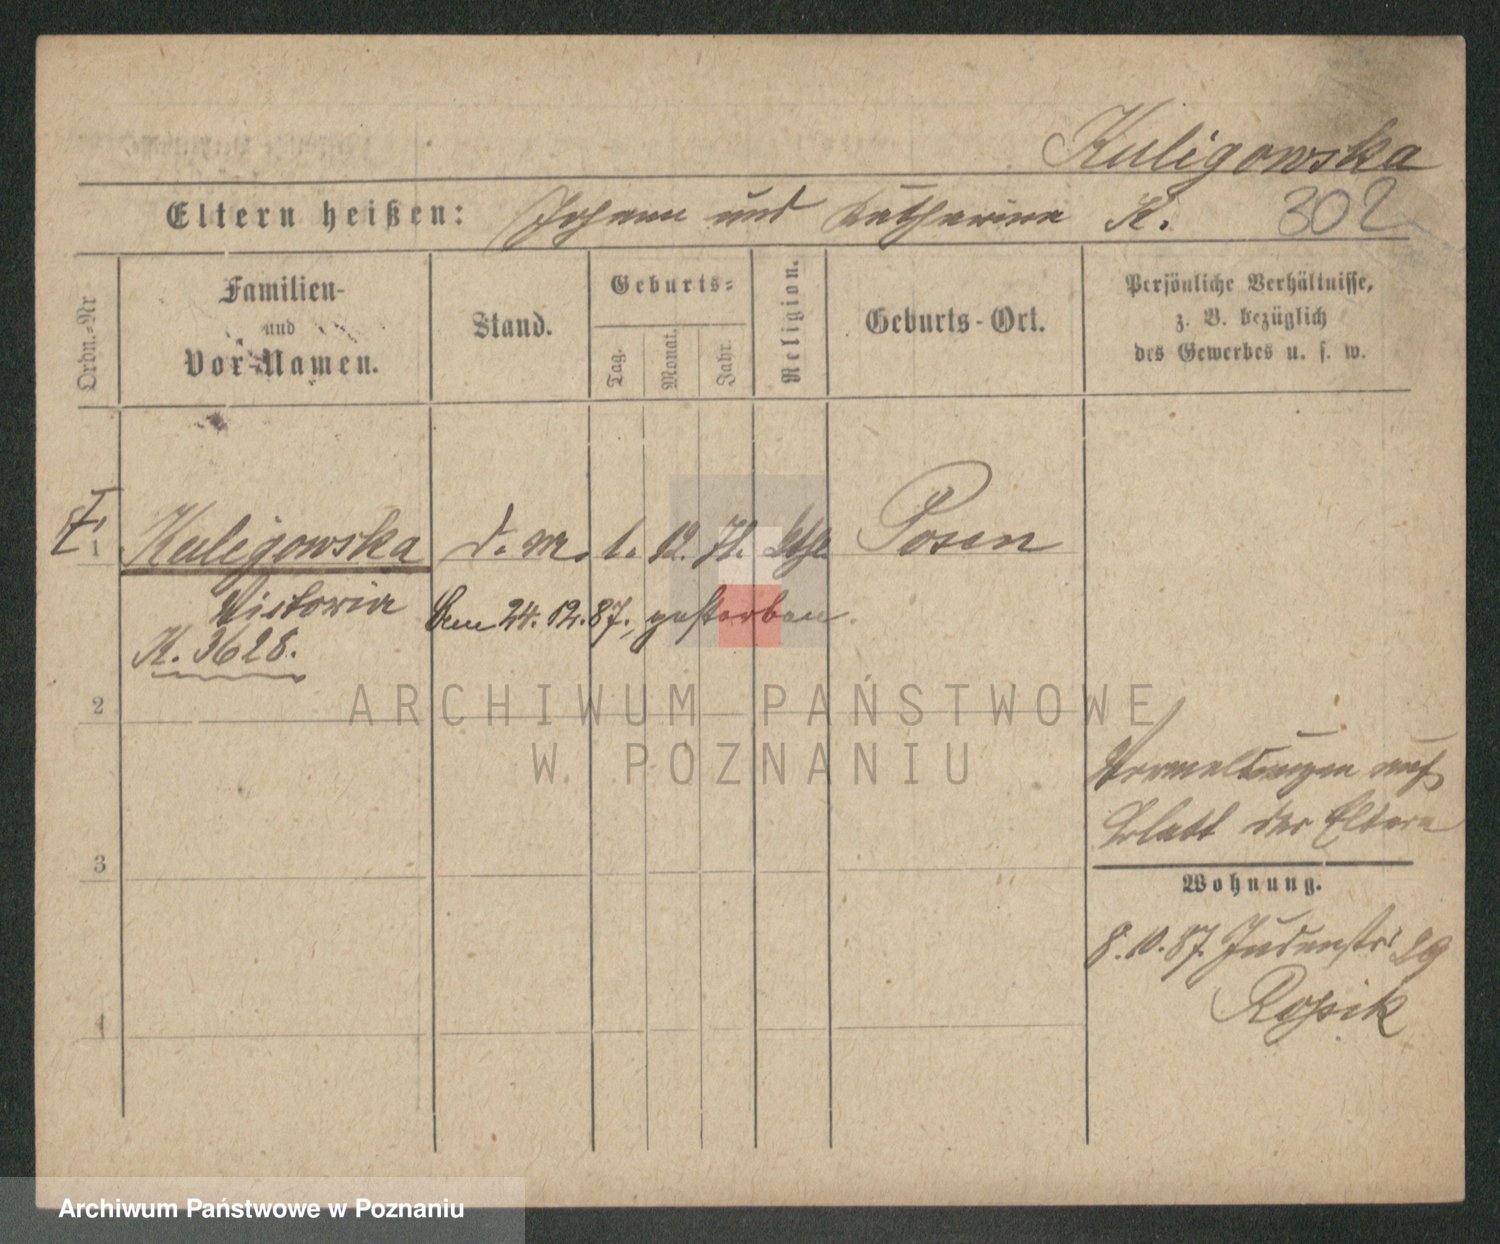 Kuligowska
Eltern heißen: Johann und Katharina K. 302
Ordn.-Nr
Familien-
und
Vor-Namen.
Stand.
Geburts-
Tag.
Monat.
Jahr.
Religion.
Geburts-Ort.
Persönliche Verhältnisse,
z. B. bezüglich
des Gewerbes u. s. w.
1 Kuligowska d. m. 1. 12. 71. kthl Posen
Victoria Den 24.12.87., gestorben.
K. 3628.
2
ARCHIWUM PAŃSTWOWE
W POZNANIU
Vermeldungen auf
Blatt der Eltern
3
Wohnung.
8.10.87. Judenstr. 29
4
Archiwum Państwowe w Poznaniu